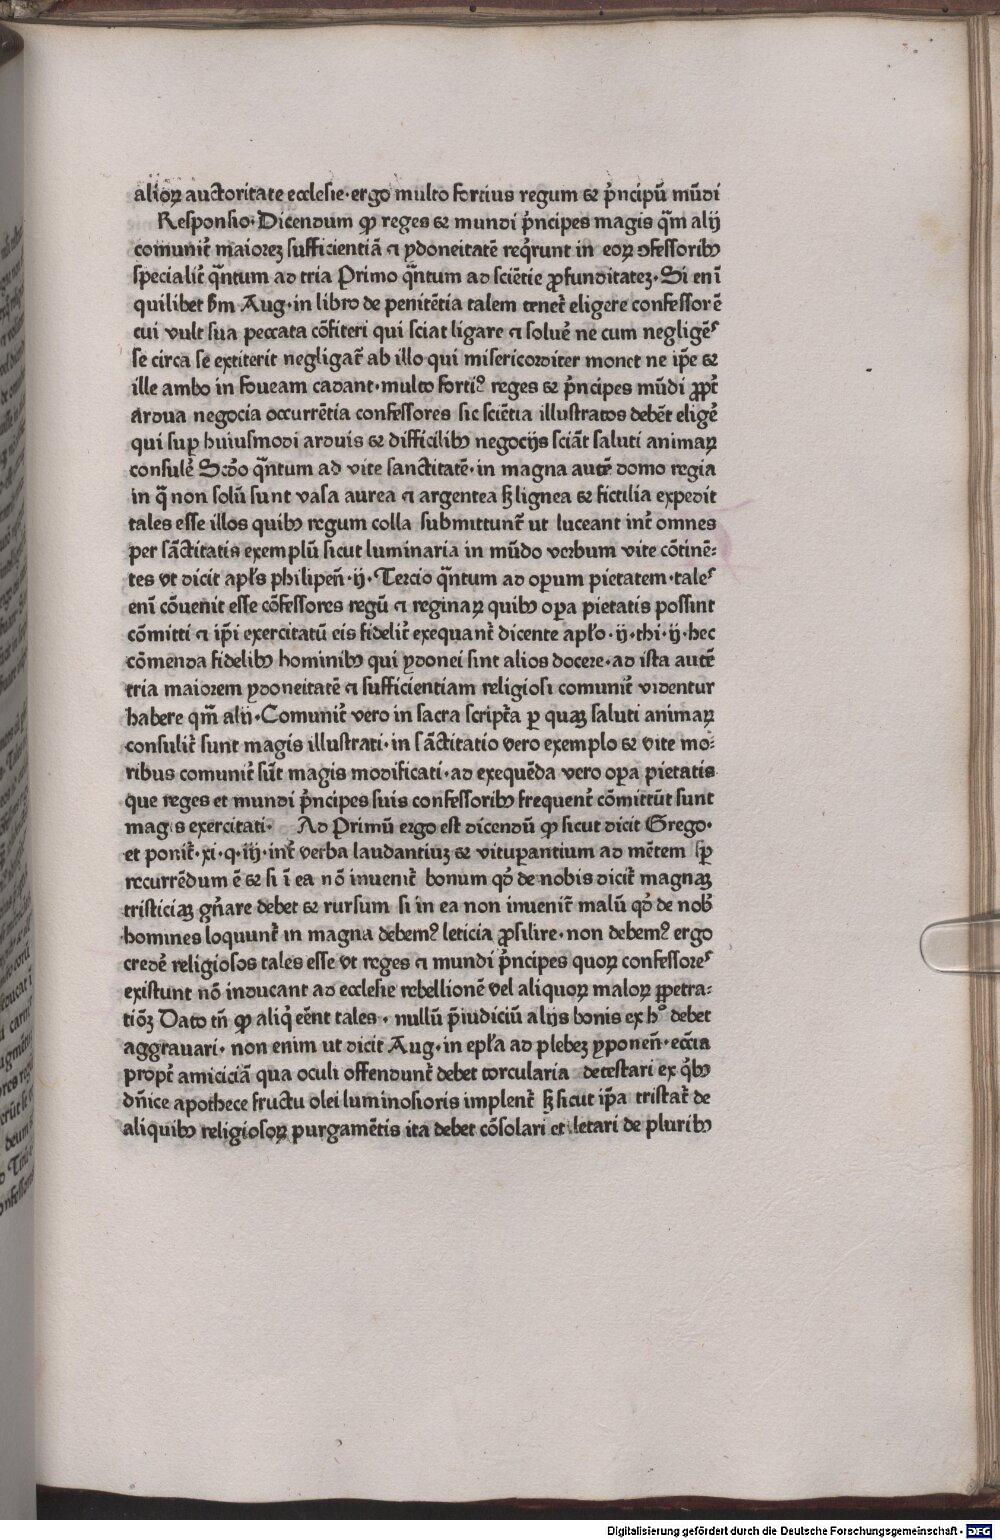 alioꝝ auctoritate ecclesie· ergo multo fortius regum & pͥncipū mūdi
Responsio· Dicendum ꝙ reges & mundi pͥncipes magis qm̄ alij
comunit̄ maiorez sufficientiā ⁊ ydoneitatē reqͥrunt in eoꝝ ꝯfessoribꝰ
specialit̄ qn̄tum ad tria Primo qn̄tum ad sciētie ꝓfunditatez· Si enī
quilibet ẜm Aug· in libro de penitētia talem tenet̄ eligere confessorē
cui vult sua peccata cōfiteri qui sciat ligare ⁊ soluē ne cum negligēs
se circa se extiterit negligat̄ ab illo qui misericorditer monet ne ip̄e &
ille ambo in foueam cadant· multo fortiꝰ reges & pͥncipes mūdi ꝓpt̄
ardua negocia occurrētia confessores sic sciētia illustratos debēt eligē
qui suꝑ huiusmodi arduis & difficilibꝰ negocijs sciāt saluti animaꝝ
consulē Scd̄o qn̄tum ad vite sanctitatē· in magna autē domo regia
in q̄ non solū sunt vasa aurea ⁊ argentea sꝫ lignea & fictilia expedit
tales esse illos quibꝰ regum colla submittunt̄ ut luceant int̄ omnes
per sāctitatis exemplū sicut luminaria in mūdo verbum vite cōtinē-
tes vt dicit apl̄s philipeñ· ij· Tercio qn̄tum ad oꝑum pietatem· tales
enī cōuenit esse cōfessores regū ⁊ reginaꝝ quibꝰ oꝑa pietatis possint
cōmitti ⁊ ip̄i exercitatū eis fidelit̄ exequant̄ dicente apl̄o· ij· thi· ij· hec
cōmenda fidelibꝰ hominibꝰ qui ydonei sint alios docere· ad ista autē
tria maiorem ydoneitatē ⁊ sufficientiam religiosi comunit̄ videntur
habere qm̄ alij· Comunit̄ vero in sacra script̄a ꝑ quaꝫ saluti animaꝝ
consulit̄ sunt magis illustrati· in sāctitatio vero exemplo & vite mo-
ribus comunit̄ sūt magis modificati· ad exequēda vero oꝑa pietatis
que reges et mundi pͥncipes suis confessoribꝰ frequent̄ cōmittūt sunt
magis exercitati· Ad Primū ergo est dicendū ꝙ sicut dicit Grego·
et ponit̄· xi· q· iij· int̄ verba laudantiuz & vituꝑantium ad mētem sꝑ
recurrēdum ē & si ī ea nō inuenit̄ bonum qd̓ de nobis dicit̄ magnaꝫ
tristiciaꝫ gn̄are debet & rursum si in ea non inuenit̄ malū qd̓ de nob̄
homines loquunt̄ in magna debemꝰ leticia ꝓsilire· non debemꝰ ergo
credē religiosos tales esse vt reges ⁊ mundi pͥncipes quoꝝ confessores
existunt nō inducant ad ecclesie rebellionē vel aliquoꝝ maloꝝ ꝑpetra-
tiōꝫ Dato tn̄ ꝙ aliqͥ eēnt tales· nullū p̄iudiciū alijs bonis ex hͦ debet
aggrauari· non enim ut dicit Aug· in epl̄a ad plebez yponeñ· ecc̄ia
propt̄ amiciciā qua oculi offendunt̄ debet torcularia detestari ex qͥbꝰ
dn̄ice apothece fructu olei luminosioris implent̄ sꝫ sicut ip̄a tristat̄ de
aliquibꝰ religiosoꝝ purgamētis ita debet cōsolari et letari de pluribꝰ
Digitalisierung gefördert durch die Deutsche Forschungsgemeinschaft - DFG